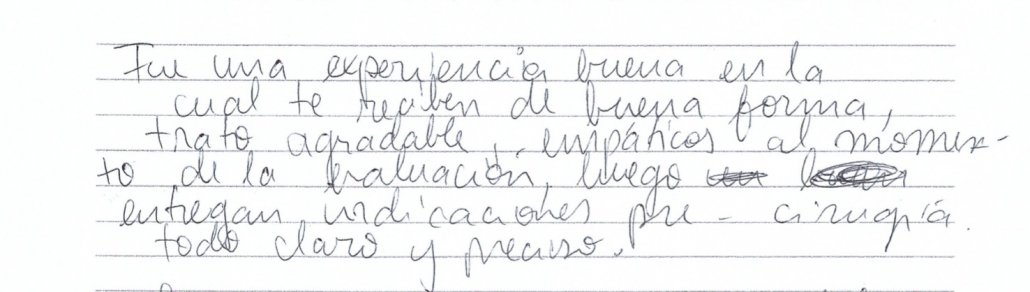 Fue una experiencia buena en la
cual te reciben de buena forma,
trato agradable, empáticos al momen-
to de la evaluación, luego
entregan indicaciones pre - cirugía.
todo claro y preciso.